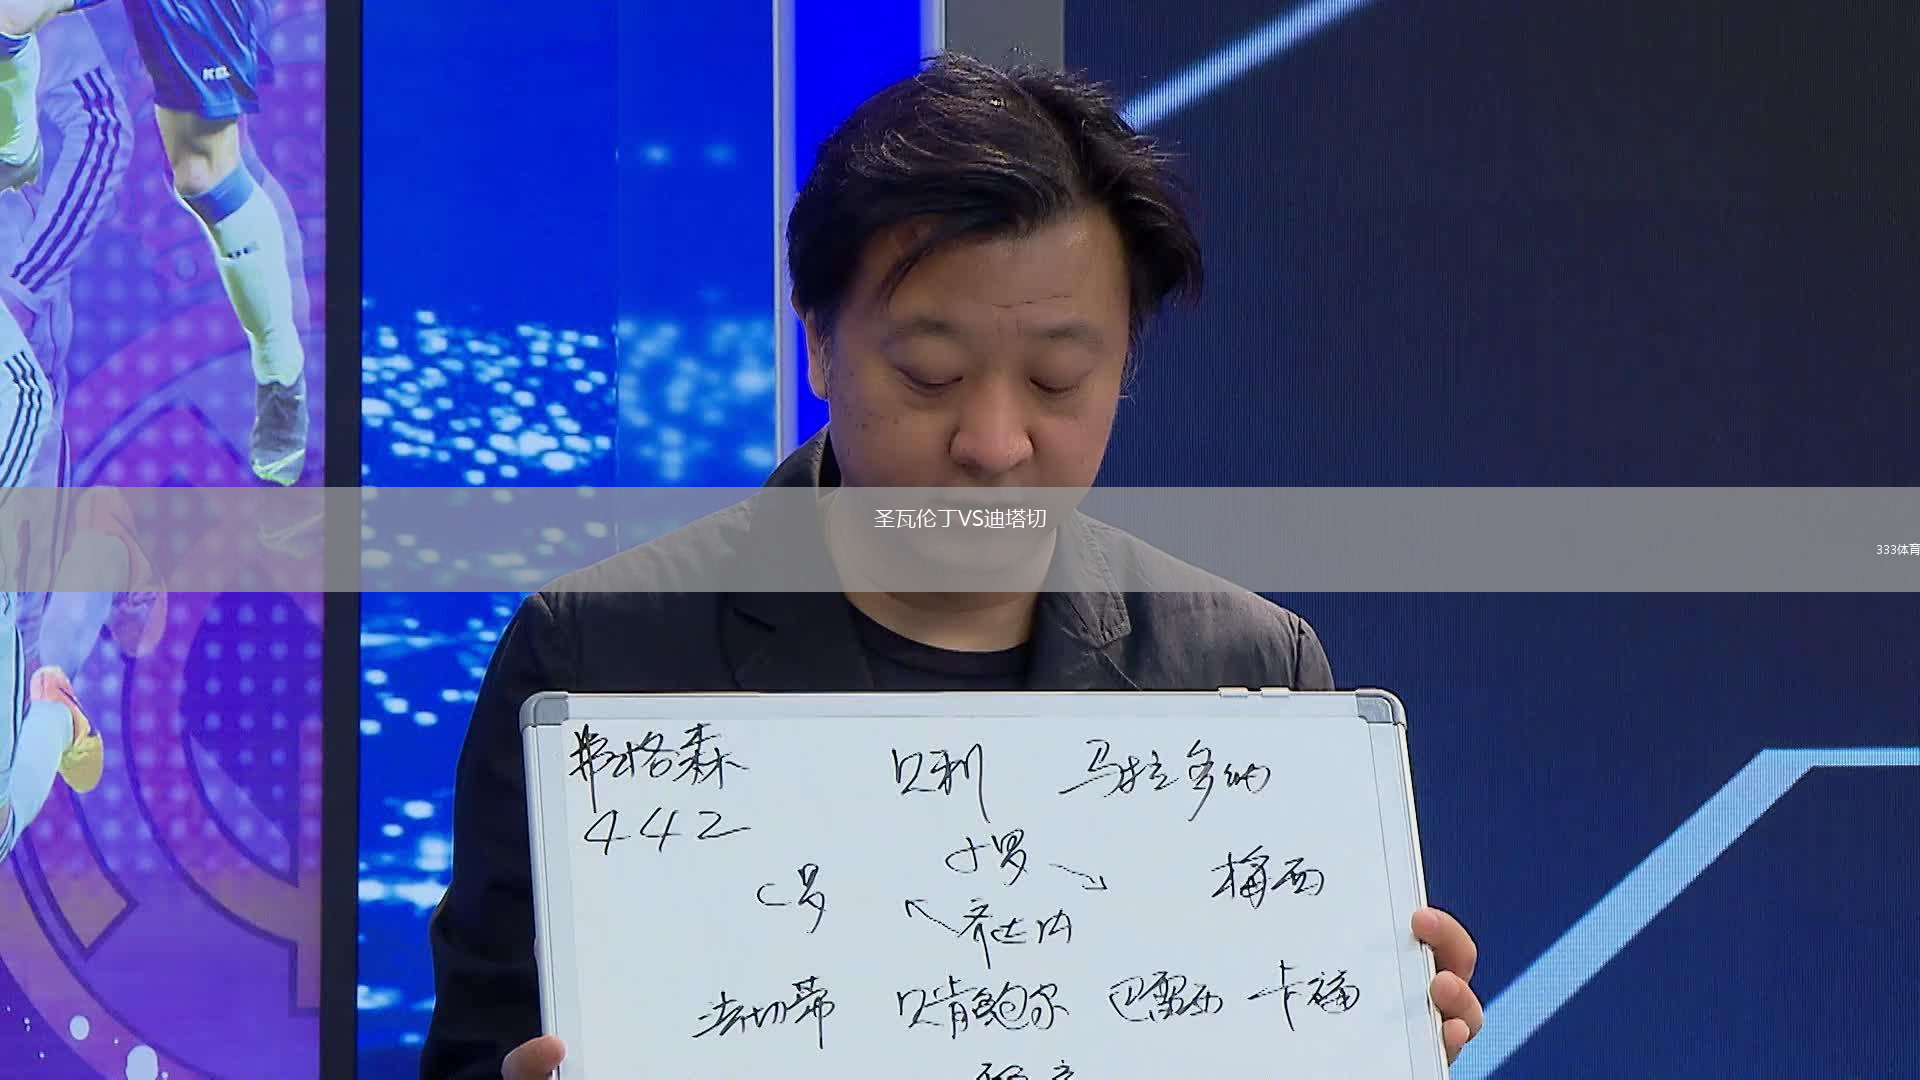 KEL
圣瓦伦丁VS迪塔切
333体育
弗格森 贝利 马拉多纳
442
小罗
C罗 梅西
齐达内
法切蒂 贝肯鲍尔 巴雷西 卡福